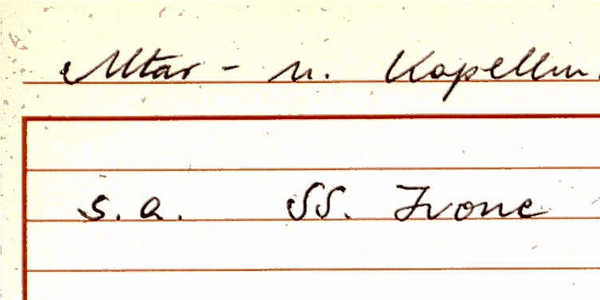 Altar- u. Kapellen
s.a. SS. Ivone